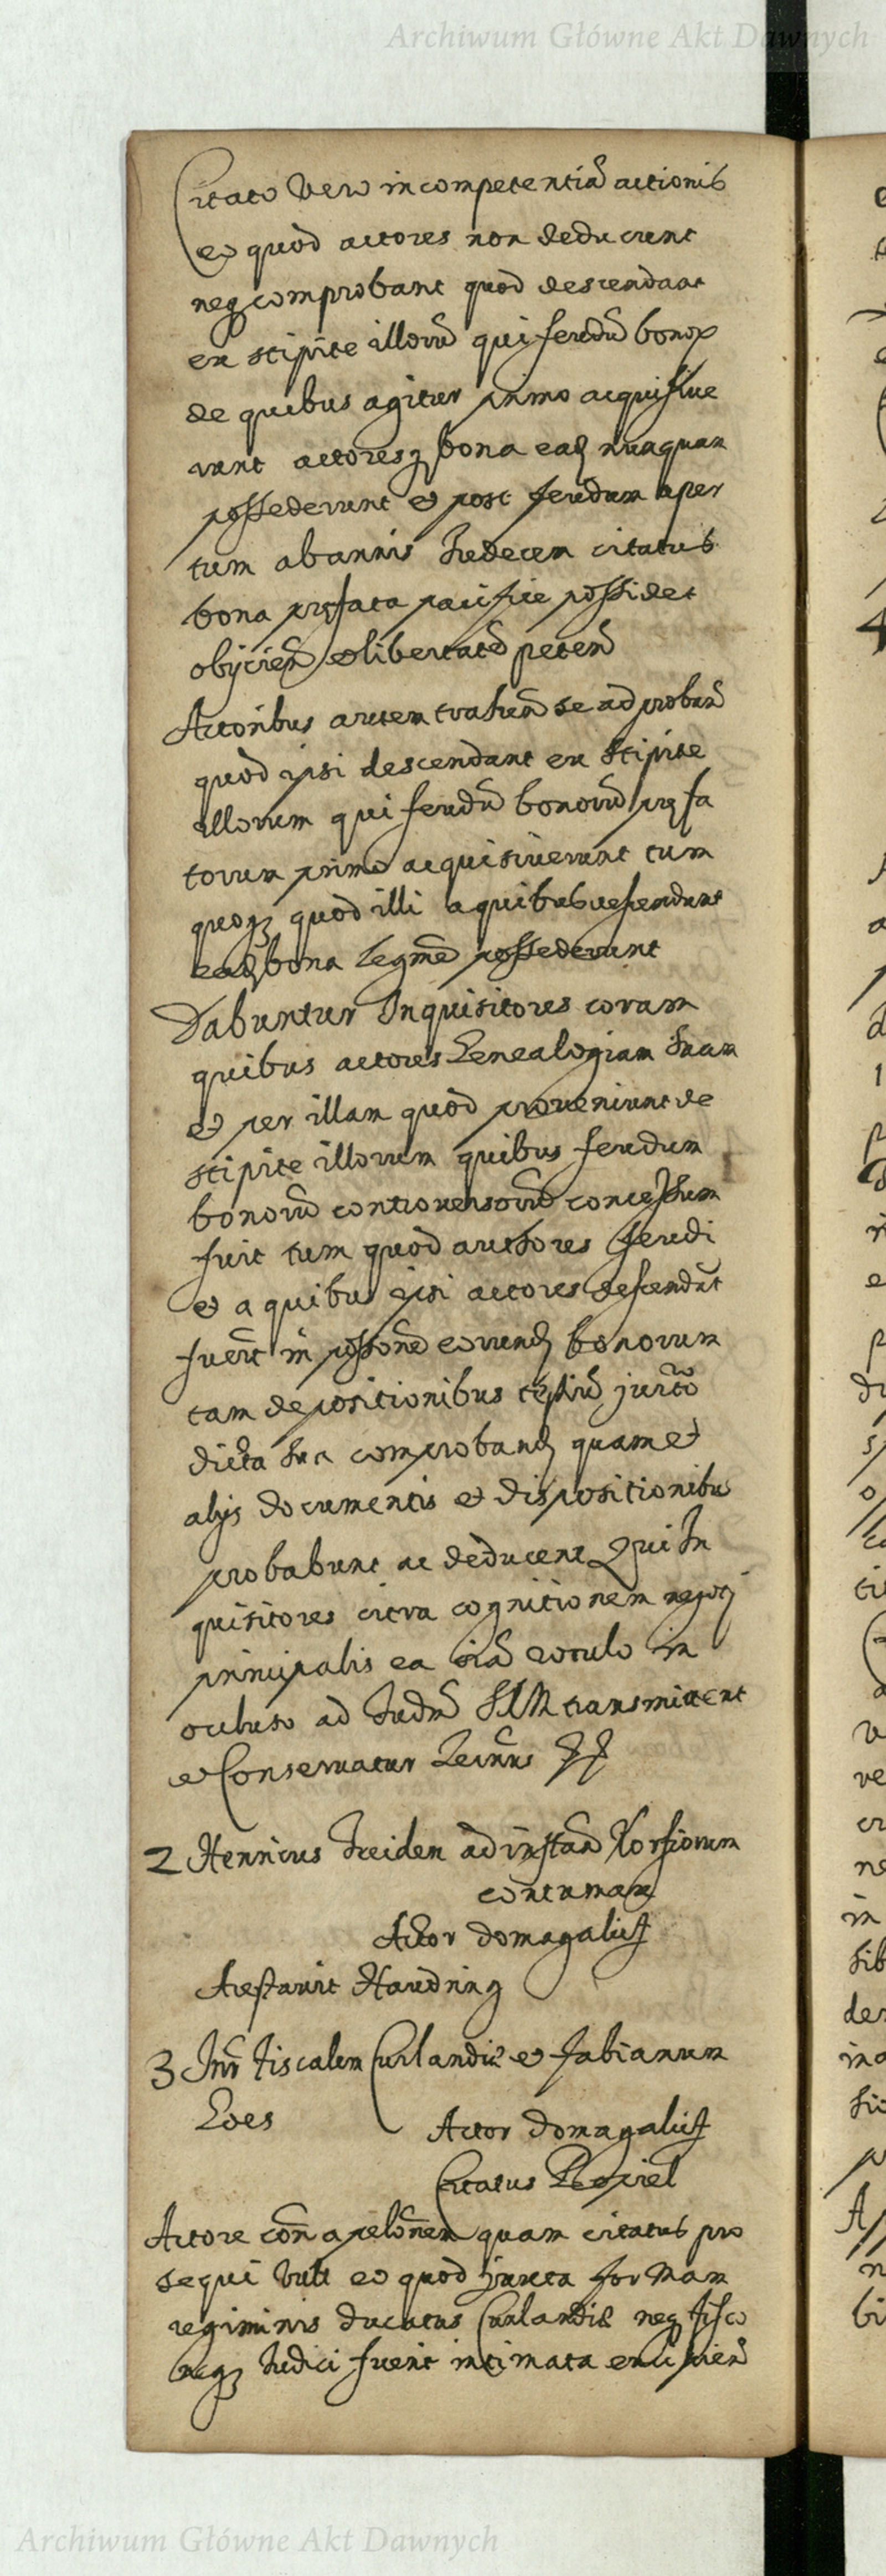 Archiwum Główne Akt Dawnych
Citato vero incompetentiã actionis
eo quòd actores non deducunt
neq comprobant quòd descendant
ex stipite illorũ qui feudũ bonoꝝ
de quibus agitur primo acquisiue
runt actoresq bona eaḍ nunquam
possederunt et post feudum aper
tum ab annis tredecem citatus
bona præfata pacifice possidet
obijcieñ et libertatẽ peteñ
Actoribus autem trahen̄ se ad proban̄
quòd ipsi descendant ex stipite
illorum qui feudũ bonorũ præfa
torum primo acquisiuerunt tum
quoqꝫ quòd illi a quibus descendunt
eaḍ bona legmẽ possederunt
Dabuntur Inquisitores coram
quibus actores Genealogiam suam
et per illam quòd proueniunt de
stipite illorum quibus feudum
bonorũ controuersorũ concessum
fuit tum quòd auctores feudi
et a quibus ipsi actores descendũt
fuerĩt in possonẽ eorunḍ bonorum
tam depositionibus testiũ jurĩto
dicta sua comprobanḍ quam et
alijs documentis et dispositionibus
probabunt ac deducent Qui In
quisitores citra cognitionem negotij
principalis ea oĩa rotulo in
occluso ad Iudm̃ SRM transmittent
et Conseruatur
2 Henricus Treiden ad instañ Korfiorum
contumax
Actor domagalius
Arestauit Haudring
3 Intr̃ fiscalem Curlandiæ et fabianum
Loes
Actor domagalius
Citatus
Actore coñ apelõnem quam citatus pro
sequi vult eo quòd juxta formam
regiminis ducatus Curlandiæ neq fisco
neqꝫ Iudici fuerit intimata excipieñ
Archiwum Główne Akt Dawnych